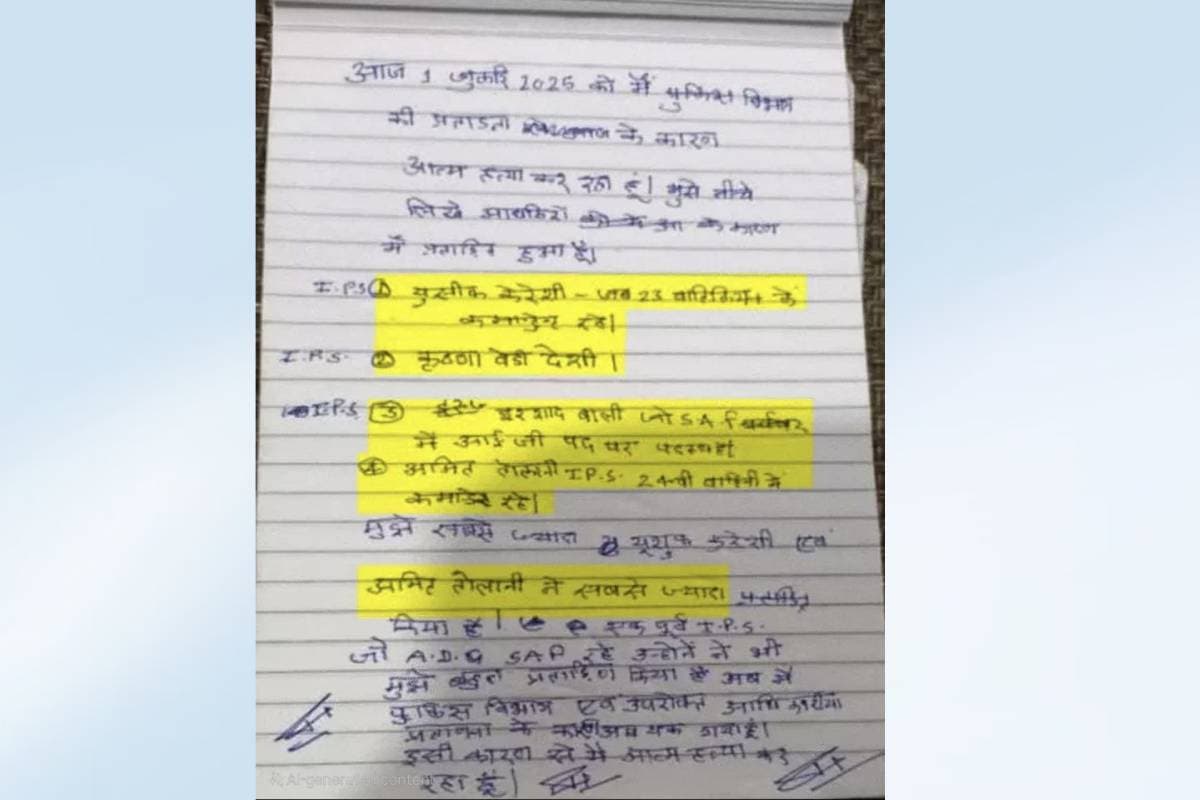 आज 1 जुलाई 2025 को मैं पुलिस विभाग
की प्रताडता के कारण
आत्म हत्या कर रहा हूं। मुझे नीचे
लिखे के कारण
में प्रताडित हुआ हूँ।
I.P.S ① युसीफ केरेशी - जब 23 के
कमांडेंट रहे।
I.P.S. ② कृष्णा वेडी देशी।
I.P.S ③ इरशाद वाली जो S A F
में आई जी पद पर पदस्थ है।
④ अमित तोलानी I.P.S. 24वी वाहिनी में
कमांडेंट रहे।
मुझे सबसे ज्यादा यूसुफ कुरेशी एवं
अमित तोलानी ने सबसे ज्यादा प्रताडित
किया है। एक पूर्व I.P.S.
जो A.D.G SAF रहे उन्होने ने भी
मुझे बहुत प्रताडित किया है अब मैं
पुलिस विभाग एवं उपरोक्त
के थक गया हूं।
इसी कारण से मैं आत्म हत्या कर
रहा हूँ।
AI-generated content